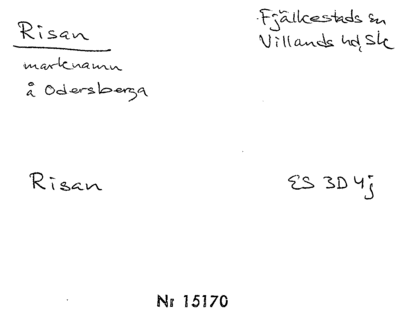 Risan
marknamn
å Odersberga
Fjälkestads sn
Villands hd, Sk
Risan
ES 3D 4j
Nr 15170